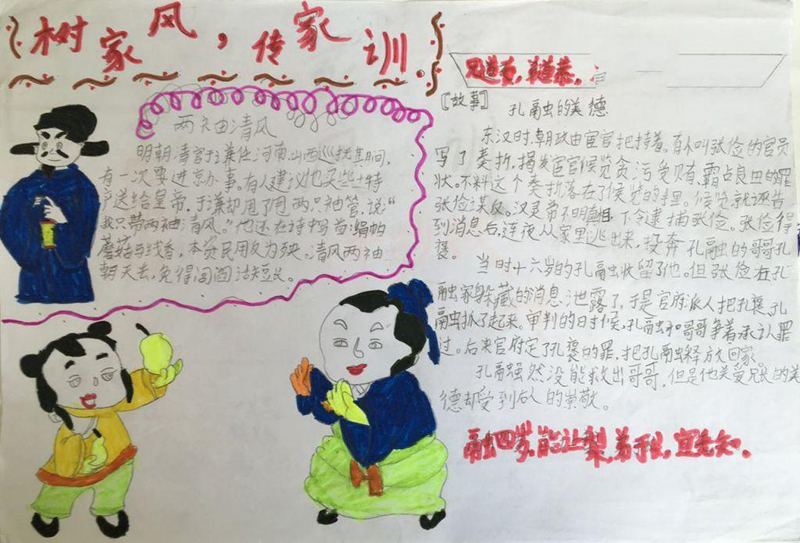 树家风，传家训
两袖清风
明朝清官于谦任河南山西巡抚其间，
有一次要进京办事，有人建议他买些土特
产送给皇帝，于谦却甩了甩两只袖管，说“
我只带两袖清风。”他还在诗中写道：绢帕
蘑菇与线香，本资民用反为殃，清风两袖
朝天去，免得阎阎话短长。
兄道友，弟道恭，
【故事】 孔融的美德
东汉时，朝政由宦官把持着，有人叫张俭的官员
写了奏折，揭发宦官侯览贪污受贿，霸占良田的罪
状。不料这个奏折落在了侯览的手里。侯览就诬告
张俭谋反。汉灵帝不明真相，下令逮捕张俭。张俭得
到消息后，连夜从家里逃出来，投奔孔融的哥哥孔
褒。
当时十六岁的孔融收留了他。但张俭在孔
融家躲藏的消息泄露了，于是官府派人把孔褒、孔
融抓了起来。审判的日时候，孔融和哥哥争着承认罪
过。后来官府定了孔褒的罪，把孔融释放回家。
孔融虽然没能救出哥哥，但是他关爱兄长的美
德却受到后人的崇敬。
融四岁，能让梨，弟于长，宜先知。